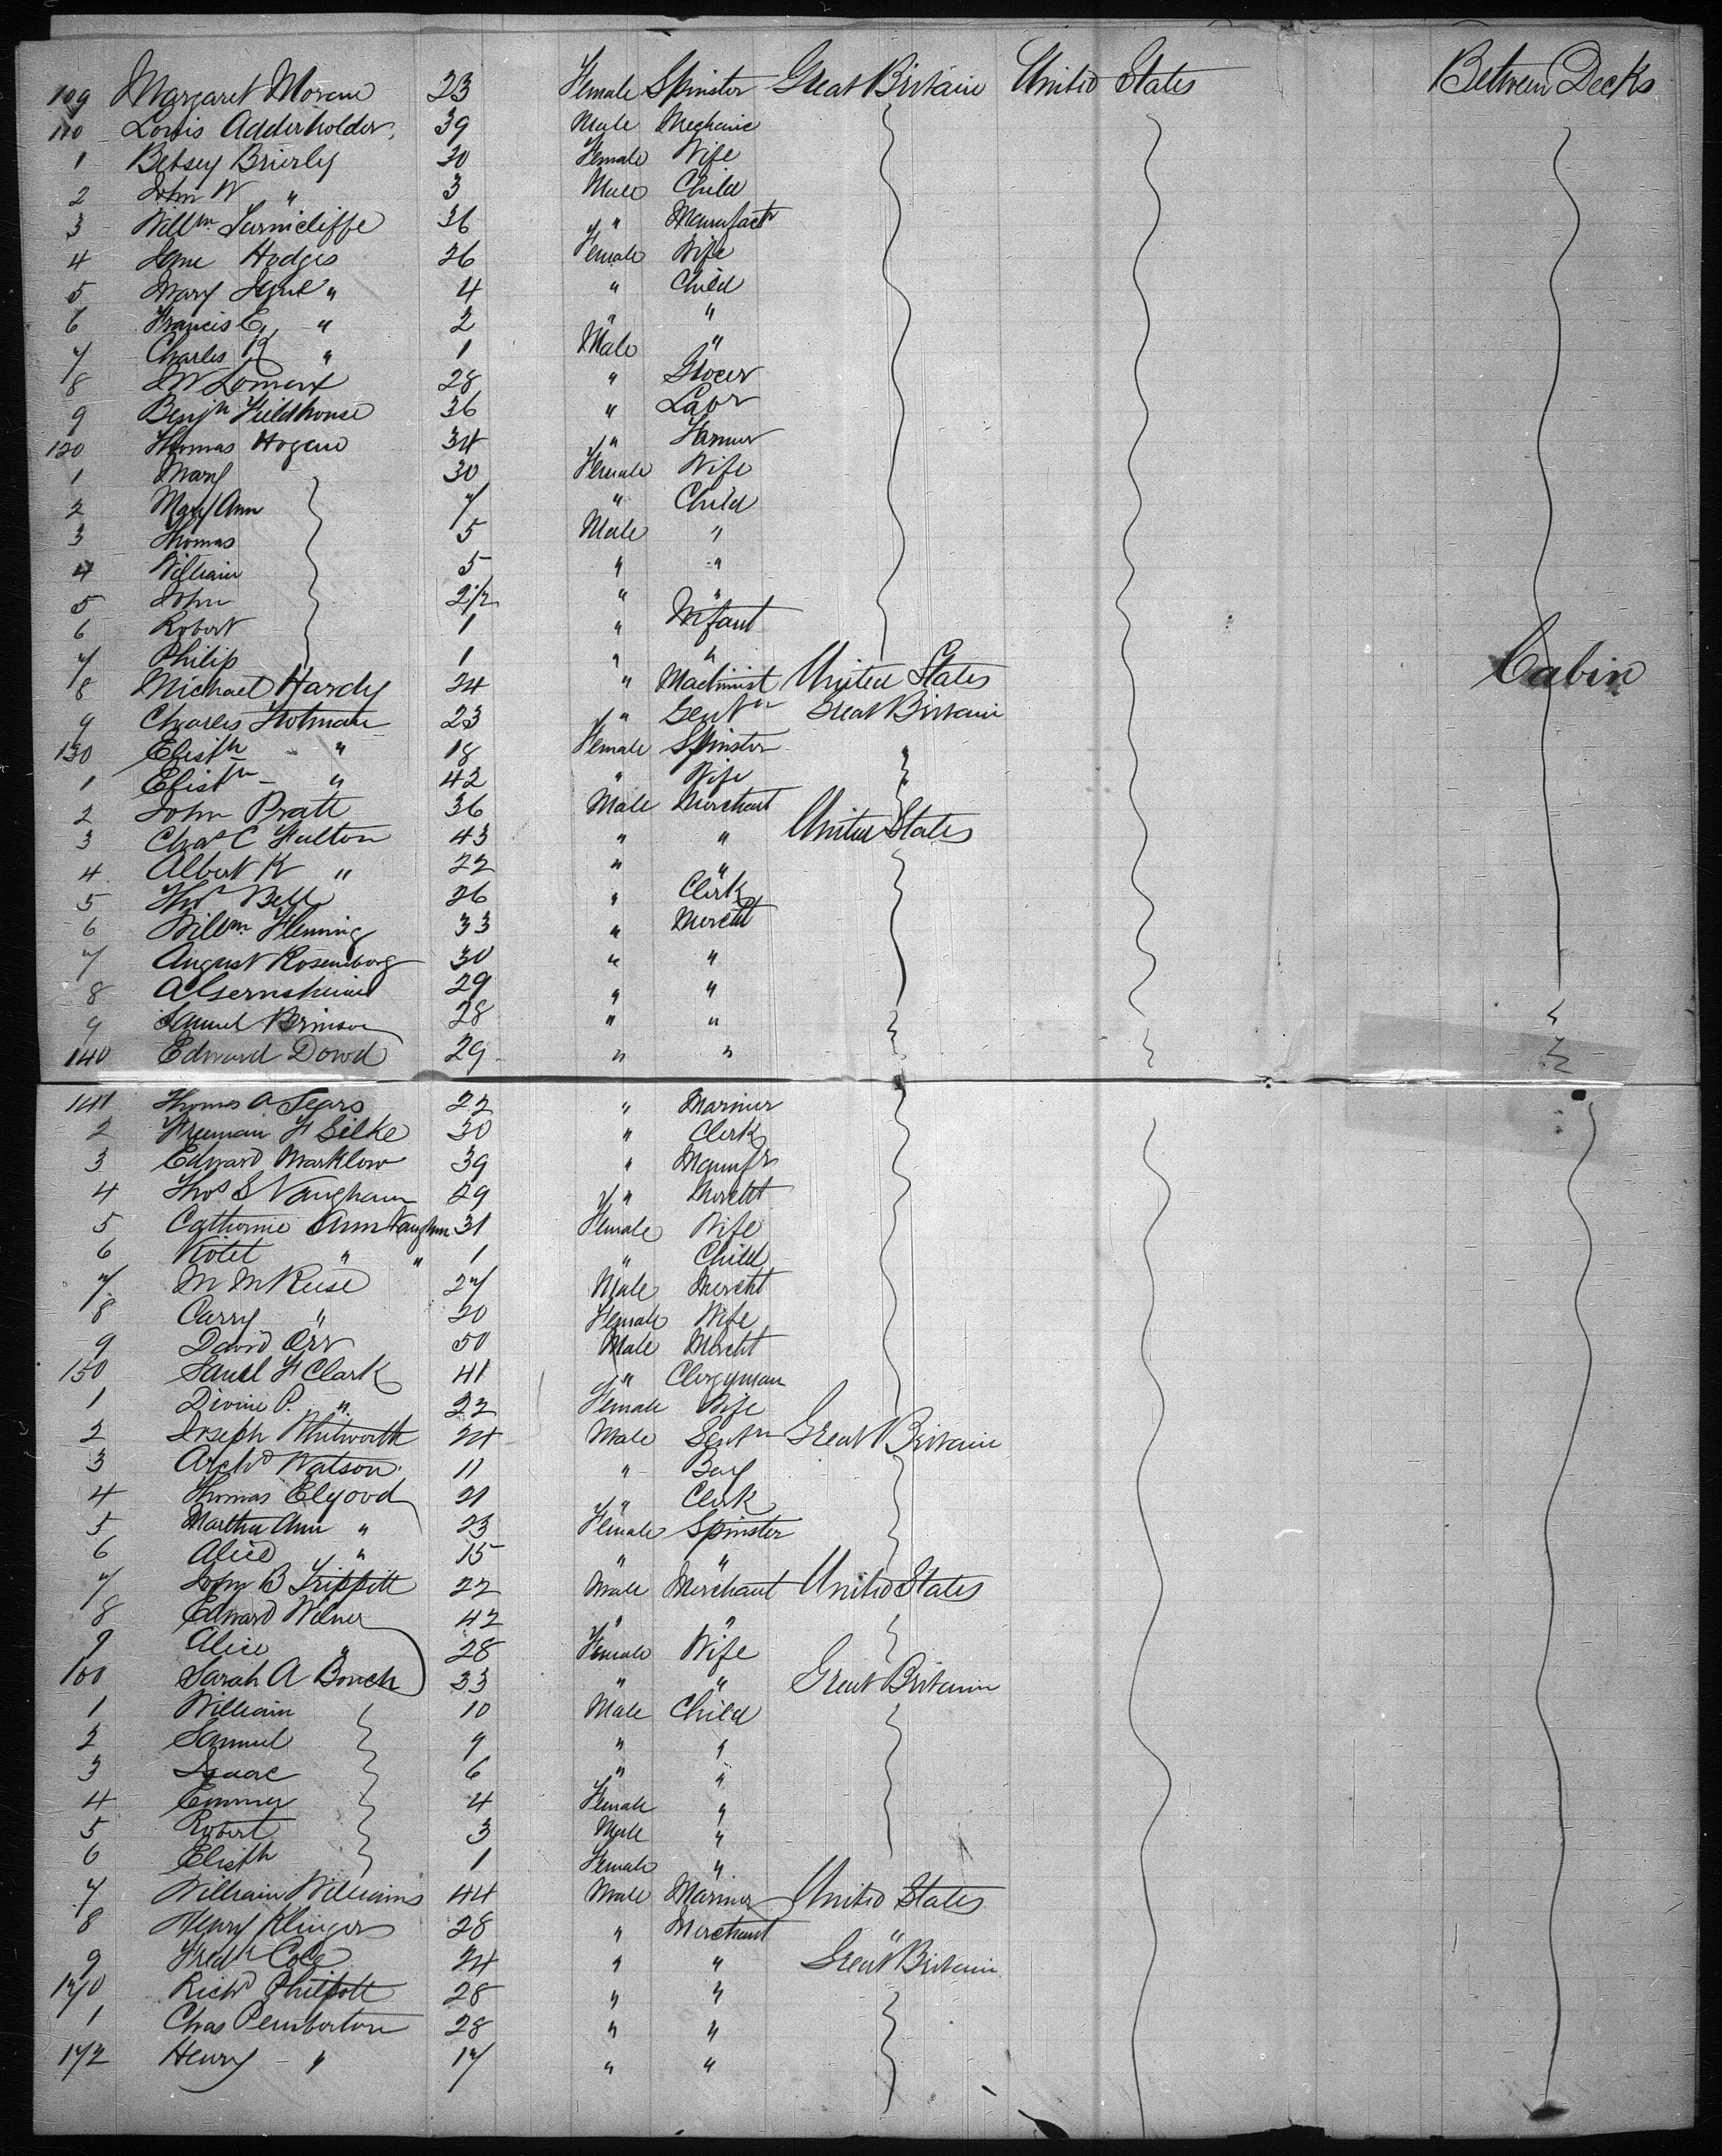 109 Margaret Moran 23 Female Spinster Great Britain United States Between Decks
110 Louis Adderholder 39 Male Mechanic
1 Betsey Brierly 30 Female Wife
2 John W " 3 Male Child
3 Willm. Surnicliffe 36 " Manufactr
4 Jane Hodges 26 Female Wife
5 Mary Jane " 4 " Child
6 Francis E. " 2 " "
7 Charles R " 1 Male "
8 J W Lomax 28 " Grocer
9 Benjn Fieldhouse 36 " Labr
120 Thomas Hogan 34 " Farmer
1 Mary 30 Female Wife
2 Mary Ann 7 " Child
3 Thomas 5 Male "
4 William 5 " "
5 John 2 1/2 " "
6 Robert 1 " Infant
7 Philip 1 " "
8 Michael Hardy 24 " Machinist United States Cabin
9 Charles Hotman 23 " Gentn Great Britain
130 Elisth " 18 Female Spinster
1 Elisth " 42 " Wife
2 John Pratt 36 Male Merchant
3 Chas C Fulton 43 " " United States
4 Albert K " 22 " "
5 Thos Bell 26 " Clerk
6 Willm. Fleming 33 " Mercht
7 August Rosenborg 30 " "
8 A Gernsheim 29 " "
9 Samuel Brinson 28 " "
140 Edward Dowd 29 " "
141 Thomas A Sears 22 " Mariner
2 Freeman F Silke 30 " Clerk
3 Edward Marklow 39 " Manufr
4 Thos S Vaughann 29 " Mercht
5 Catherine Ann Vaughan 31 Female Wife
6 Violet " " 1 " Child
7 M M Reese 27 Male Mercht
8 Carry " 20 Female Wife
9 David Orr 50 Male Mercht
150 Saml F Clark 41 " Clergyman
1 Divine P. " 22 Female Wife
2 Joseph Whitworth 24 Male Gentn Great Britain
3 Archd Watson 11 " Boy
4 Thomas Elgood 21 " Clerk
5 Martha Ann " 23 Female Spinster
6 Alice " 15 " "
7 John B Trippitt 22 Male Merchant United States
8 Edward Wilner 42 " "
9 Alice " 28 Female Wife
160 Sarah A Bouch 33 " " Great Britain
1 William 10 Male Child
2 Samuel 9 " "
3 Isaac 6 " "
4 Emmer 4 Female "
5 Robert 3 Male "
6 Elisth 1 Female "
7 William Williams 44 Male Mariner United States
8 Henry Klinger 28 " Merchant "
9 Fredk Cole 24 " " Great Britain
170 Richd Philpott 28 " "
1 Chas Pemberton 28 " "
172 Henry " 17 " "